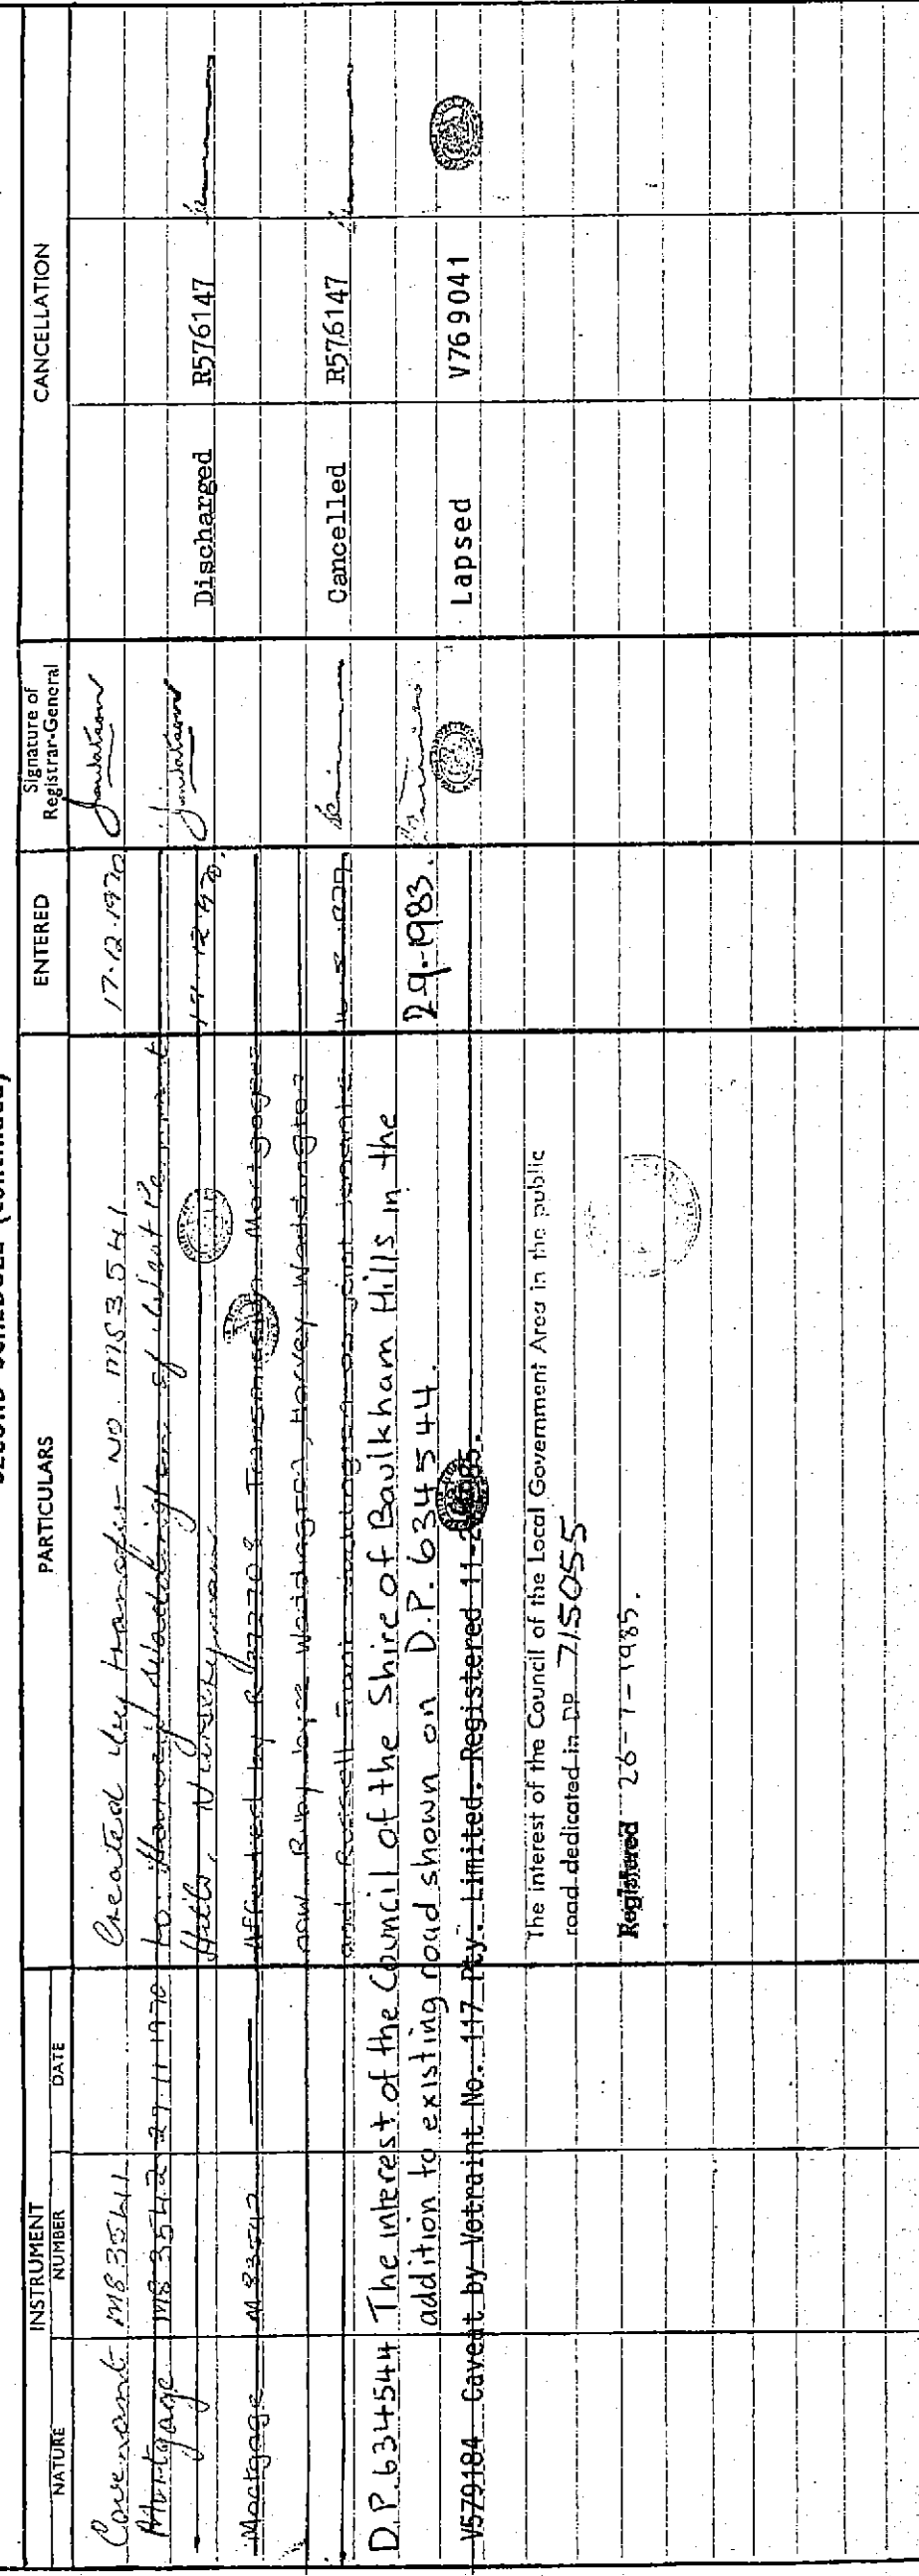 SECOND SCHEDULE (continued)
INSTRUMENT
NATURE NUMBER DATE PARTICULARS ENTERED Signature of Registrar-General CANCELLATION
Covenant M83541 Created by transfer No. M83541 17.12.1970
Mortgage M83542 27.11.1970 to Harvey Waddington of West Pennant
Hills, Nurseryman 17.12.1970. Discharged R576147
Mortgage M83542 Affected by Transmission Mortgagee
now Ruby Joyce Waddington, Harvey Waddington
and Russell Waddington as joint tenants Cancelled R576147
D.P.634544 The interest of the Council of the Shire of Baulkham Hills in the
addition to existing road shown on D.P. 634544. 2.9.1983.
V579184 Caveat by Votraint No. 117 Pty. Limited. Registered Lapsed V769041
The interest of the Council of the Local Government Area in the public
road dedicated in DP 715055
Registered 26-7-1985.